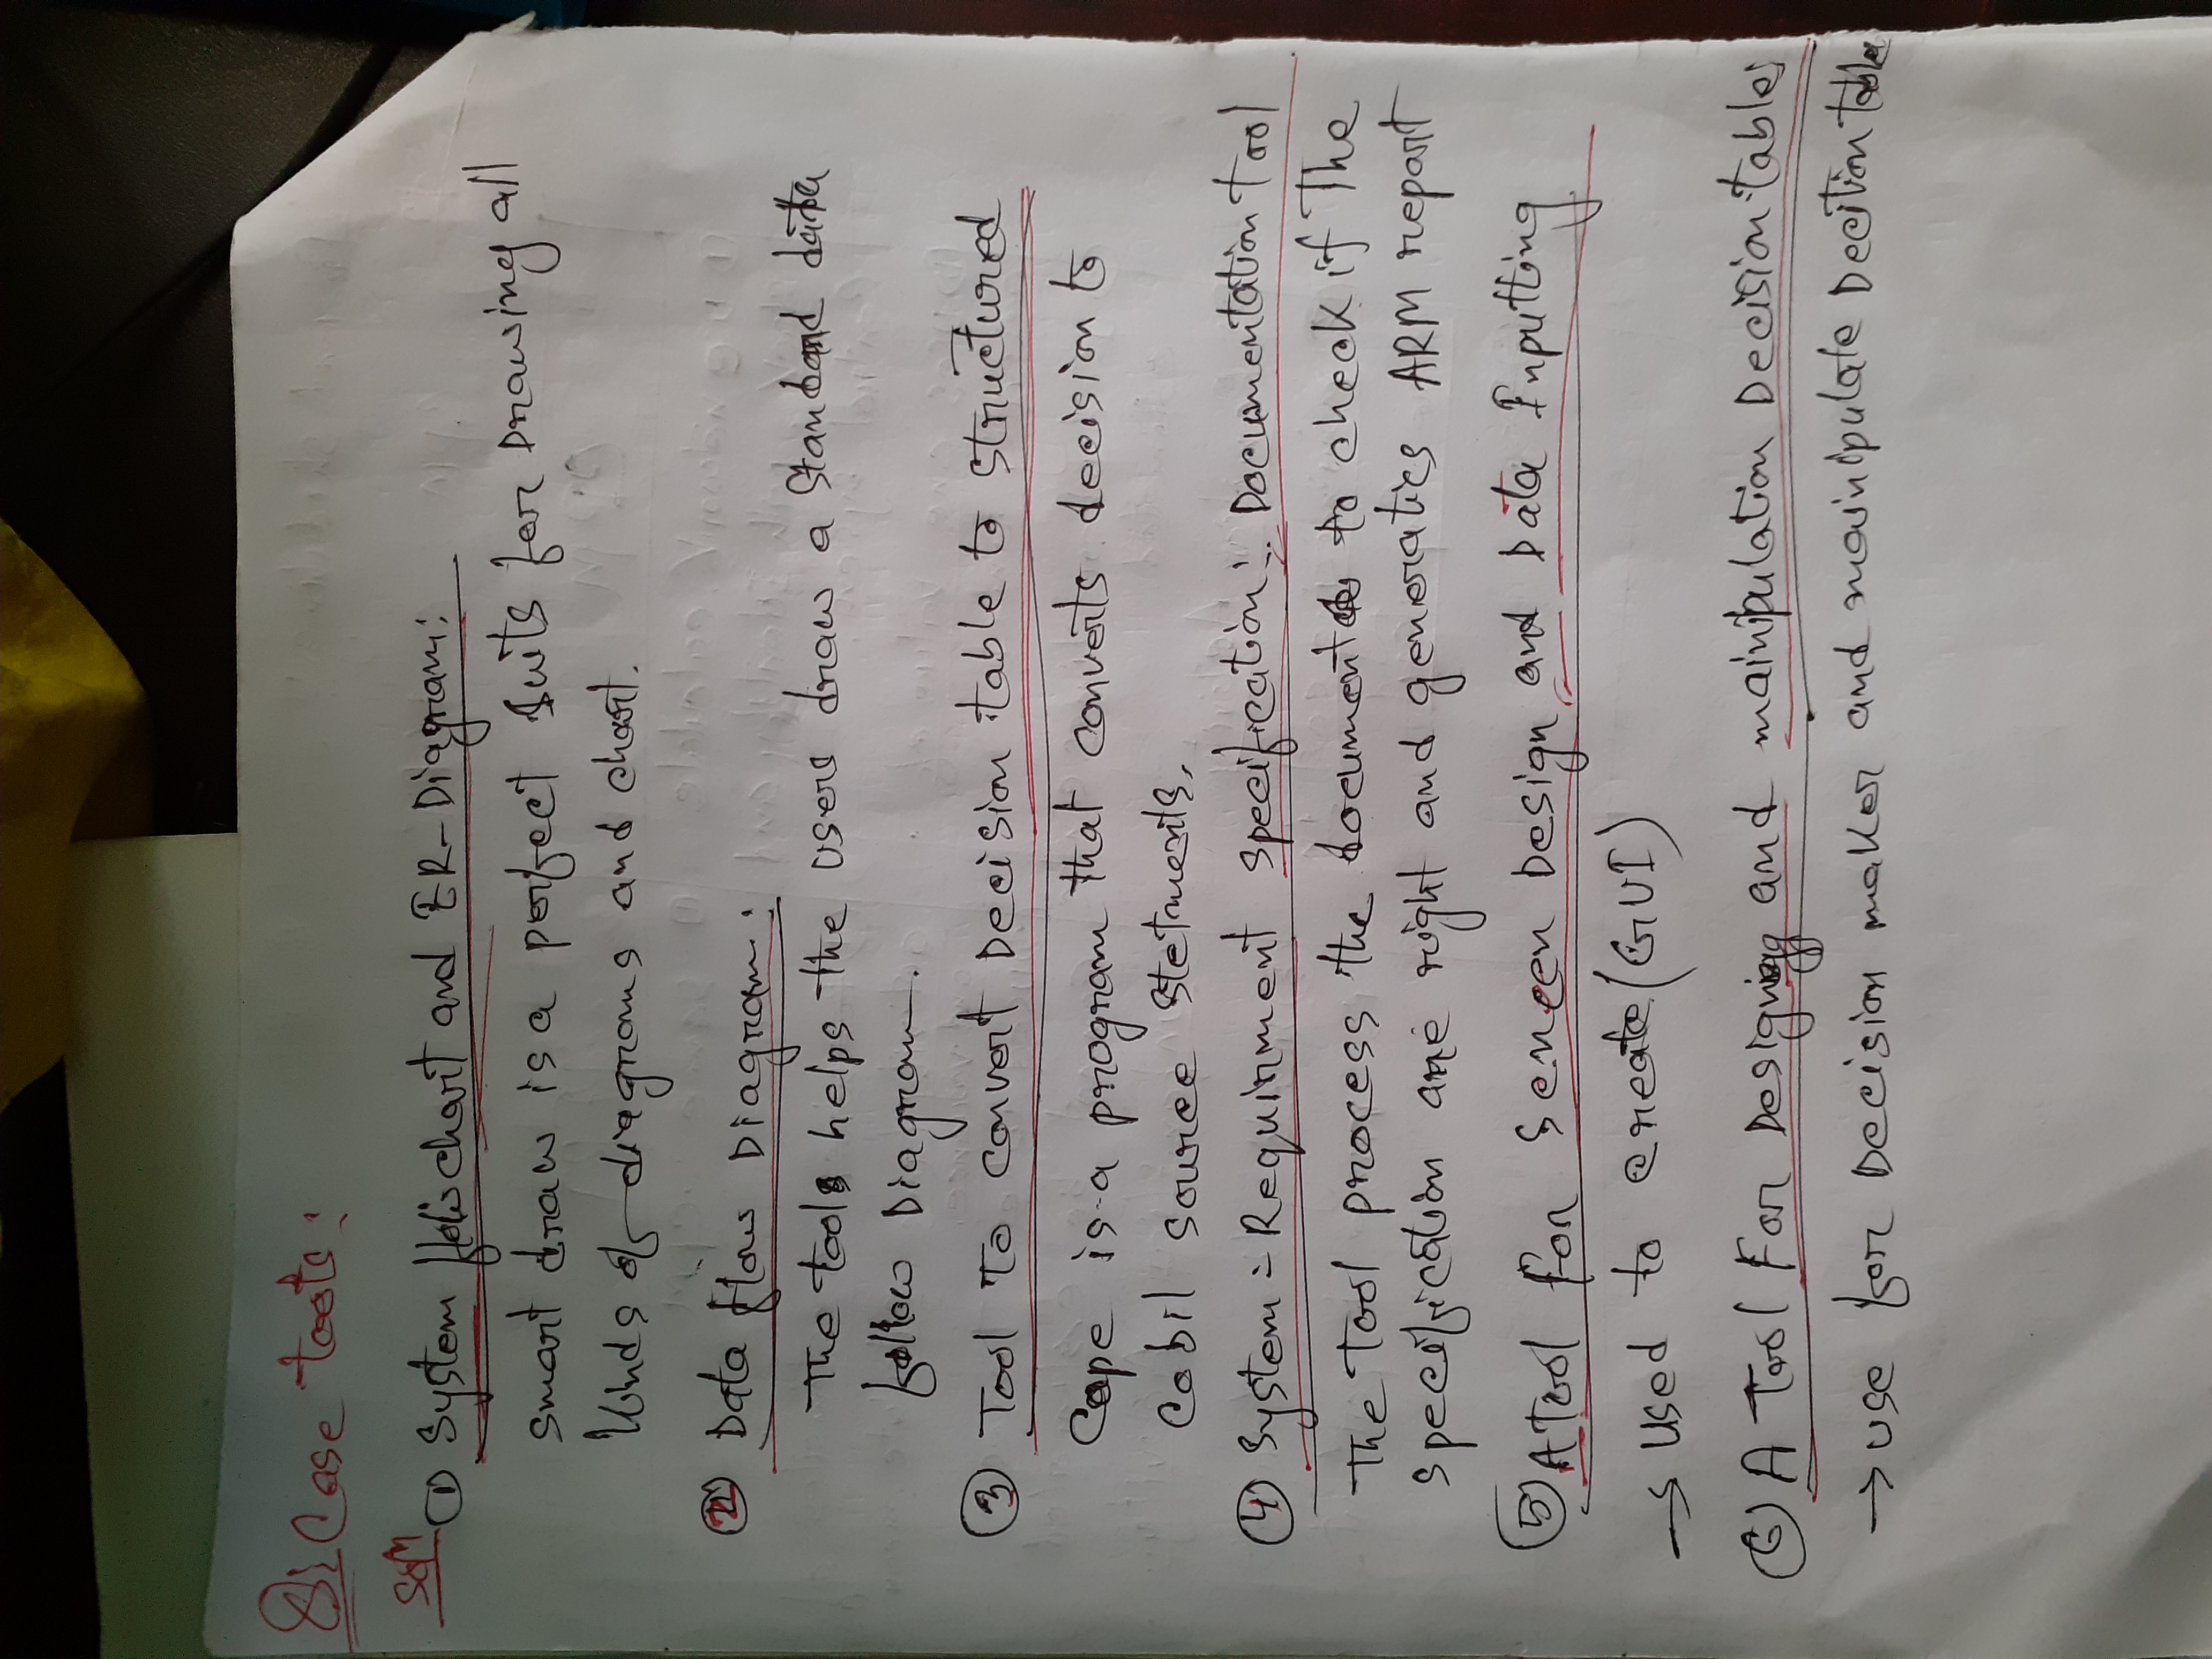 Q: Case tools:
Solⁿ ① System flowchart and ER-Diagram:
smart draw is a perfect suits for Drawing all
kinds of diagrams and chart.
② Data flow Diagram:
The tools helps the users draw a standard data
follow Diagram.
③ Tool To convert Decision table to structured
Cape is a program that converts decision to
Cobil source stetments,
④ System = Requirment specification: Documentation Tool
The Tool process the documents to check if The
specification are right and generatics ARM report
⑤ A Tool for Screen Design and Data Inputting
→ Used to create (GUI)
⑥ A Tool For Designing and mainipulation Decision tables
→ use for Decision maker and mainipulate Decition table